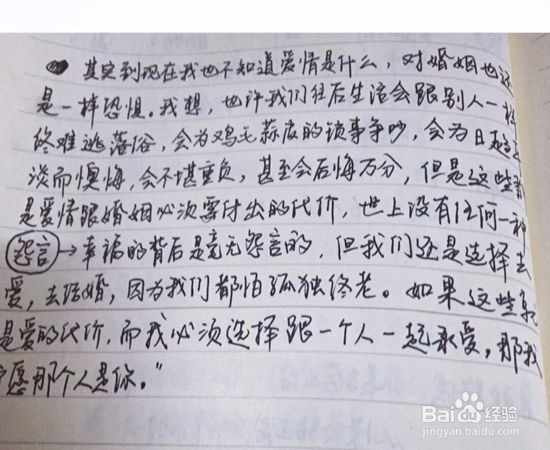 其实到现在我也不知道爱情是什么，对婚姻也还
是一样恐惧。我想，也许我们往后生活会跟别人一样
终难逃落俗，会为鸡毛蒜皮的琐事争吵，会为日趋平
淡而懊悔，会不堪重负，甚至会后悔万分，但是这些都
是爱情跟婚姻必须要付出的代价，世上没有任何一种
怨言→幸福的背后是毫无怨言的，但我们还是选择去
爱，去结婚，因为我们都怕孤独终老。如果这些就
是爱的代价，而我必须选择跟一个人一起承受，那我
宁愿那个人是你。"
Baidu经验
jingyan.baidu.com